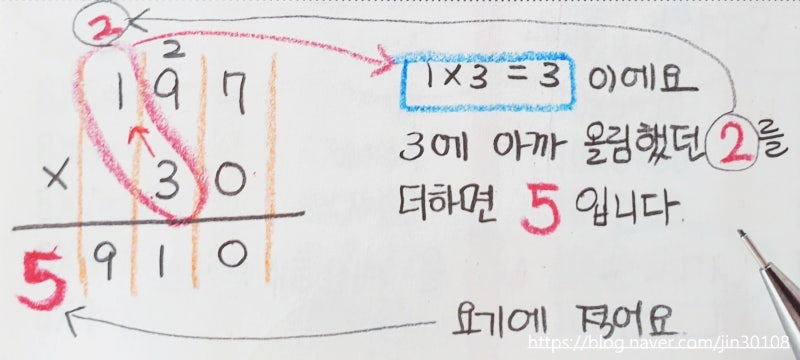 2
2
1 9 7
× 3 0
5 9 1 0
1 × 3 = 3 이에요
3에 아까 올림했던 2를
더하면 5입니다.
요기에 적어요
https://blog.naver.com/jin30108